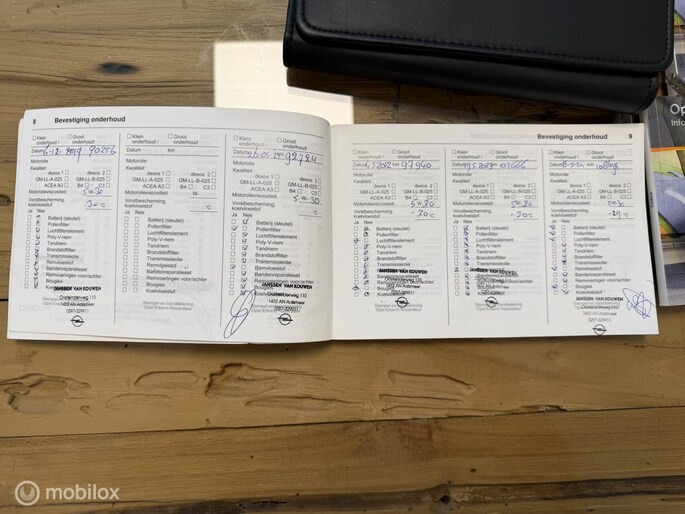 8 Bevestiging onderhoud
Klein onderhoud / Groot onderhoud
Datum 06-12-2019 90256
Motorolie
Kwaliteit:
dexos 1 dexos 2
GM-LL-A-025 GM-LL-B-025
ACEA A3 B4 C3
Motorolieviscositeit: 5 W-30
Vorstbescherming, koelvloeistof
30 °C
Ja Nee
Batterij (sleutel)
Pollenfilter
Luchtfilterelement
Poly-V-riem
Tandriem
Brandstoffilter
Transmissieolie
Remvloeistof
Bandenreparatieset
Remvoeringen voor/achter
Bougies
Koelvloeistof
JANSSEN VAN KOUWEN
Oosteinderweg 110
1432 AN Aalsmeer
0297-329911
Klein onderhoud / Groot onderhoud
Datum km
Motorolie
Kwaliteit:
dexos 1 dexos 2
GM-LL-A-025 GM-LL-B-025
ACEA A3 B4 C3
Motorolieviscositeit: W-
Vorstbescherming, koelvloeistof
°C
Ja Nee
Batterij (sleutel)
Pollenfilter
Luchtfilterelement
Poly-V-riem
Tandriem
Brandstoffilter
Transmissieolie
Remvloeistof
Bandenreparatieset
Remvoeringen voor/achter
Bougies
Koelvloeistof
Stempel en handtekening
Opel Erkend Reparateur
Klein onderhoud / Groot onderhoud
92724
Motorolie
Kwaliteit:
dexos 1 dexos 2
GM-LL-A-025 GM-LL-B-025
ACEA A3 B4 C3
Motorolieviscositeit: 5 W-30
Vorstbescherming, koelvloeistof
°C
Ja Nee
Batterij (sleutel)
Pollenfilter
Luchtfilterelement
Poly-V-riem
Tandriem
Brandstoffilter
Transmissieolie
Remvloeistof
Bandenreparatieset
Remvoeringen voor/achter
Bougies
JANSSEN VAN KOUWEN
Oosteinderweg 110
1432 AN Aalsmeer
0297-329911
Bevestiging onderhoud 9
Klein onderhoud / Groot onderhoud
97940
Motorolie
Kwaliteit:
dexos 1 dexos 2
GM-LL-A-025 GM-LL-B-025
ACEA A3 B4 C3
Motorolieviscositeit: 5 W-30
Vorstbescherming, koelvloeistof
-30 °C
Ja Nee
Batterij (sleutel)
Pollenfilter
Luchtfilterelement
Poly-V-riem
Tandriem
Brandstoffilter
Transmissieolie
Remvloeistof
JANSSEN VAN KOUWEN
1432 AN Aalsmeer
0297-329911
Klein onderhoud / Groot onderhoud
Motorolie
Kwaliteit:
dexos 1 dexos 2
GM-LL-A-025 GM-LL-B-025
ACEA A3 B4 C3
Motorolieviscositeit: 5W-30
Vorstbescherming, koelvloeistof
-30 °C
Ja Nee
Batterij (sleutel)
Pollenfilter
Luchtfilterelement
Poly-V-riem
Tandriem
Brandstoffilter
Transmissieolie
JANSSEN VAN KOUWEN
0297-329911
Klein onderhoud / Groot onderhoud
Motorolie
Kwaliteit:
dexos 1 dexos 2
GM-LL-A-025 GM-LL-B-025
ACEA A3 B4 C3
Motorolieviscositeit: 5W-30
Vorstbescherming, koelvloeistof
-29 °C
Ja Nee
Batterij (sleutel)
Pollenfilter
Luchtfilterelement
Poly-V-riem
Tandriem
Brandstoffilter
Transmissieolie
Remvloeistof
Bandenreparatieset
Remvoeringen voor/achter
Bougies
Koelvloeistof
JANSSEN VAN KOUWEN
Oosteinderweg 110
1432 AN Aalsmeer
0297-329911
Op
Info
mobilox